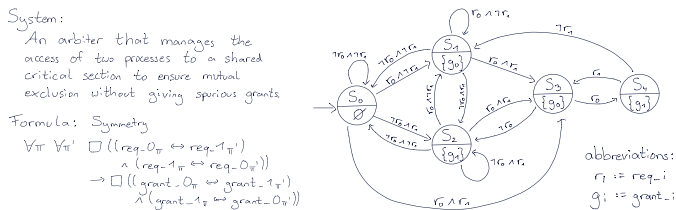 System:
An arbiter that manages the
access of two processes to a shared
critical section to ensure mutual
exclusion without giving spurious grants.
Formula: Symmetry
∀π ∀π' □((req_0π ↔ req_1π')
∧ (req_1π ↔ req_0π'))
→ □((grant_0π ↔ grant_1π')
∧ (grant_1π ↔ grant_0π'))
r₀ ∧ ¬r₁
¬r₁
¬r₀ ∧ ¬r₁
S₁
{g₀}
¬r₀ ∧ ¬r₁
r₀ ∧ ¬r₁
r₀ ∧ r₁
r₁
S₀
∅
S₃
{g₀}
S₄
{g₁}
r₀
r₀ ∧ r₁
¬r₀ ∧ r₁
¬r₀ ∧ ¬r₁
S₂
{g₁}
¬r₀
¬r₀ ∧ r₁
r₀ ∧ r₁
abbreviations:
rᵢ := req_i
gᵢ := grant_i